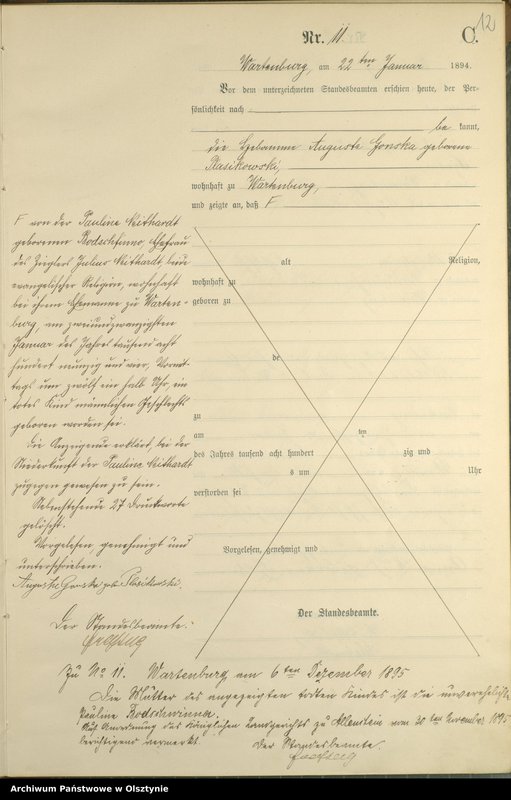 12
Nr. 11
C.
Wartenburg, am 22 ten Januar 1894.
Vor dem unterzeichneten Standesbeamten erschien heute, der Per-
sönlichkeit nach
be kannt,
die Hebamme Auguste Gonska geborene
Plasikowski,
wohnhaft zu Wartenburg,
und zeigte an, daß F
F von der Pauline Neithardt
geborenen Bodschwinna, Ehefrau
des Zieglers Julius Neithardt, beide
evangelischer Religion, wohnhaft
bei ihrem Ehemanne zu Warten-
burg, am zweiundzwanzigsten
Januar des Jahres tausend acht
hundert neunzig und vier, Vormit-
tags um zwölf ein halb Uhr, ein
totes Kind männlichen Geschlechts
geboren worden sei.
Die Anzeigende erklärt, bei der
Niederkunft der Pauline Neithardt
zugegen gewesen zu sein.
Nebenstehende 27 Druckworte
gelöscht.
Vorgelesen, genehmigt und
unterschrieben.
Auguste Gonska geb. Plasikowski.
Der Standesbeamte.
alt Religion,
wohnhaft zu
geboren zu
de
zu
am ten
des Jahres tausend acht hundert zig und
s um Uhr
verstorben sei
Vorgelesen, genehmigt und
Der Standesbeamte.
Zu No 11. Wartenburg am 6 ten Dezember 1895
Die Mutter des angezeigten todten Kindes ist die unverehelichte
Pauline Bodschwinna.
Auf Anordnung des Königlichen Landgerichts zu Allenstein vom 30 ten November 1895
berichtigend vermerkt.
Der Standesbeamte.
Archiwum Państwowe w Olsztynie